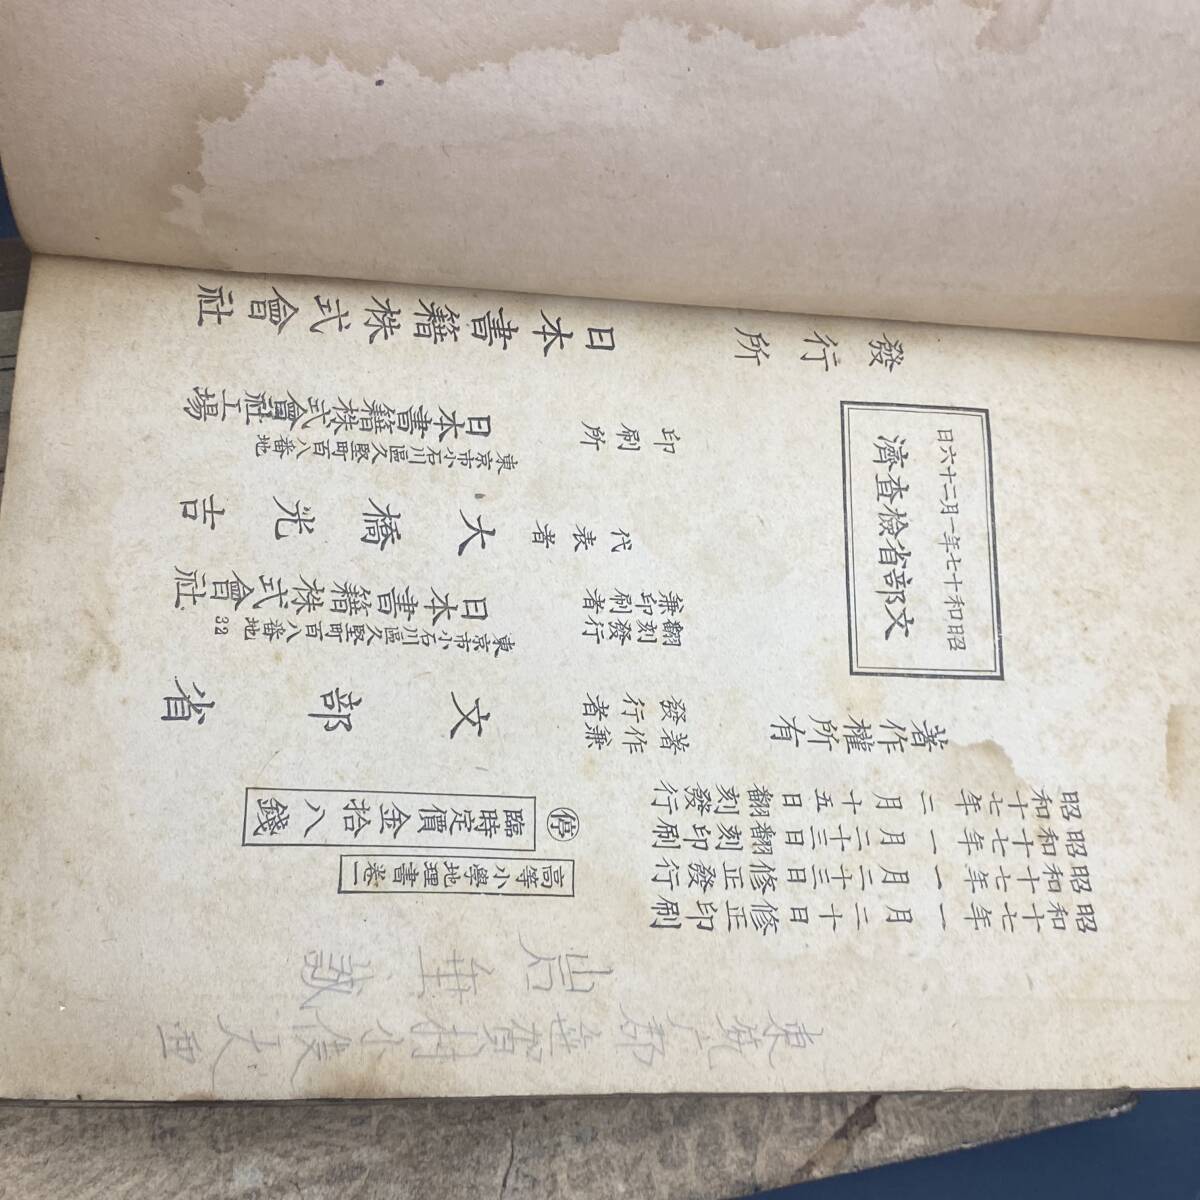 東筑 郡笹賀村小俣
岩垂誠
昭和十七年一月二十日修正印刷
昭和十七年一月二十三日修正發行
昭和十七年一月二十三日翻刻印刷
昭和十七年二月十五日翻刻發行
高等小學地理書卷一
停
臨時定價金拾八錢
著作權所有
著作兼發行者
文部省
昭和十七年一月二十六日
文部省檢查濟
翻刻發行兼印刷者
東京市小石川區久堅町百八番地
日本書籍株式會社
32
代表者
大橋光吉
印刷所
東京市小石川區久堅町百八番地
日本書籍株式會社工場
發行所
日本書籍株式會社